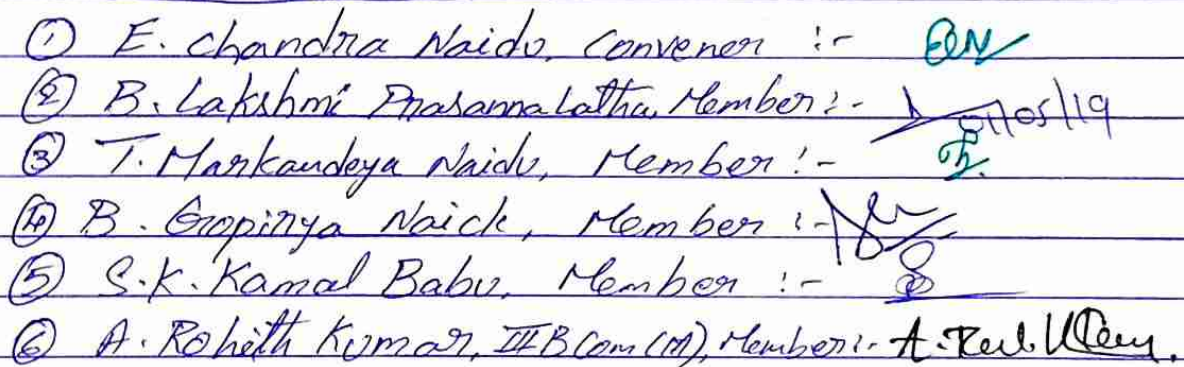 ① E. Chandra Naidu, Convener :-
② B. Lakshmi Prasanna Latha, Member :- 01/05/19
③ T. Markandeya Naidu, Member :-
④ B. Gopinya Naick, Member :-
⑤ S.K. Kamal Babu, Member :-
⑥ A. Rohith Kumar, III B Com (CA), Member :-